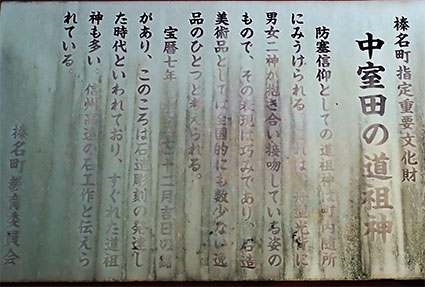 榛名町指定重要文化財
中室田の道祖神
防塞信仰としての道祖神は町内随所
にみうけられる
男女二神が抱き合い接吻している姿の
もので、その表現は巧みであり、石造
美術品としては全国的にも数少ない逸
品のひとつと考えられる。
宝暦七年 十二月吉日の
があり、このころは石造彫刻の発達し
た時代といわれており、すぐれた道祖
神も多い。信州高遠の石工作と伝えら
れている。
榛名町教育委員会